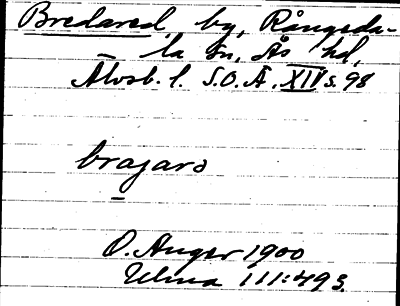 Bredared by, Rångeda-
la sn, Ås hd,
Älvsb. l. S.O.Ä. XIV s. 98
bragarə
O. Anger 1900
Ulma 111:49 s.